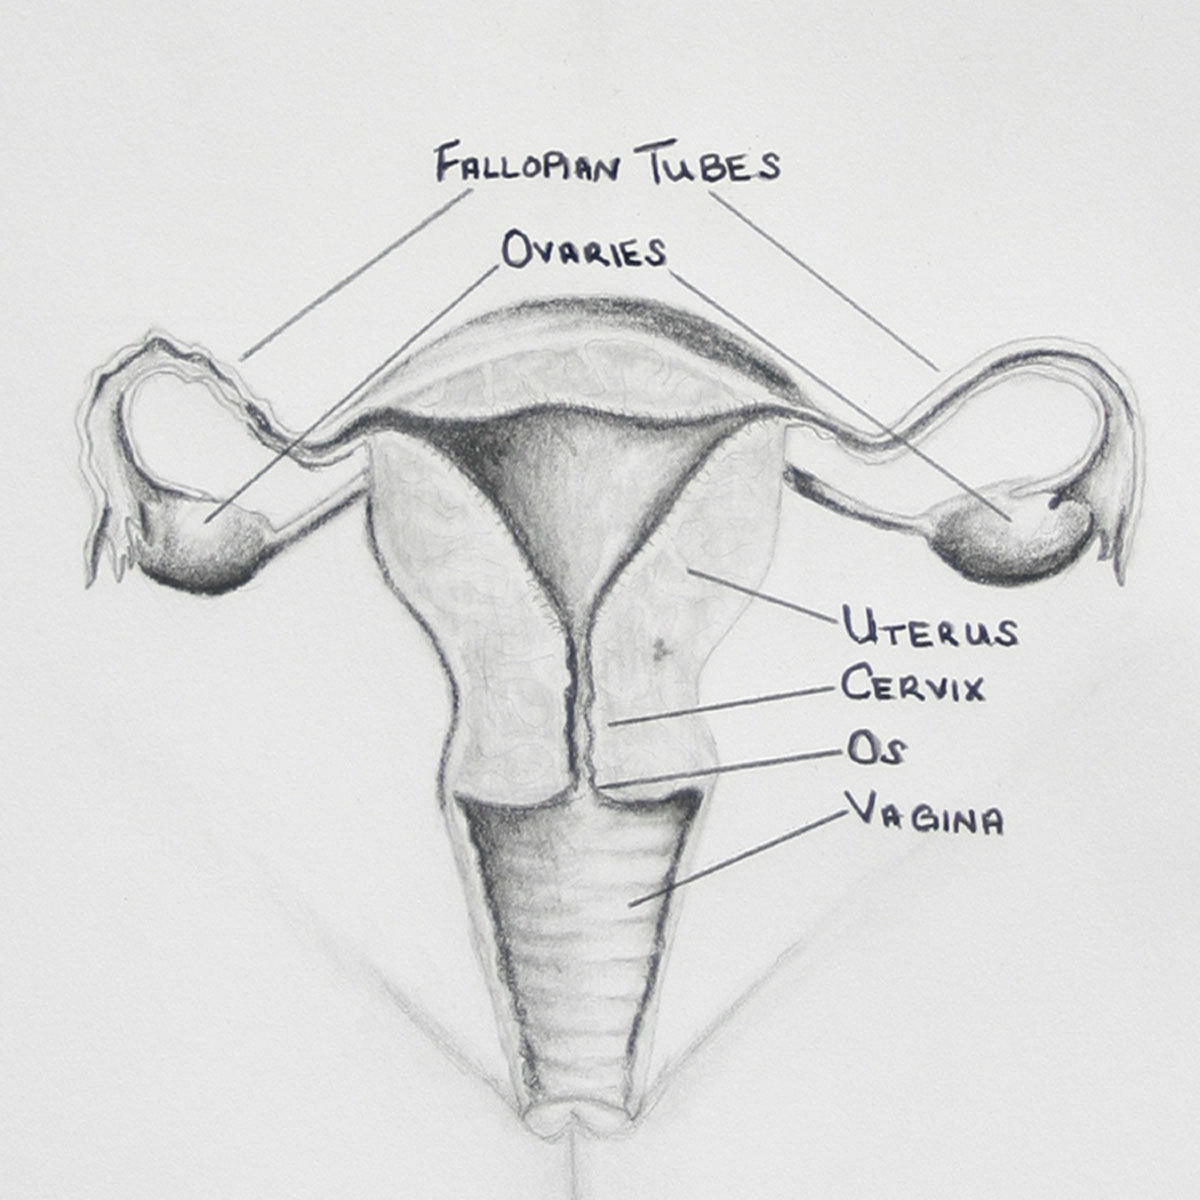 FALLOPIAN TUBES
OVARIES
UTERUS
CERVIX
OS
VAGINA